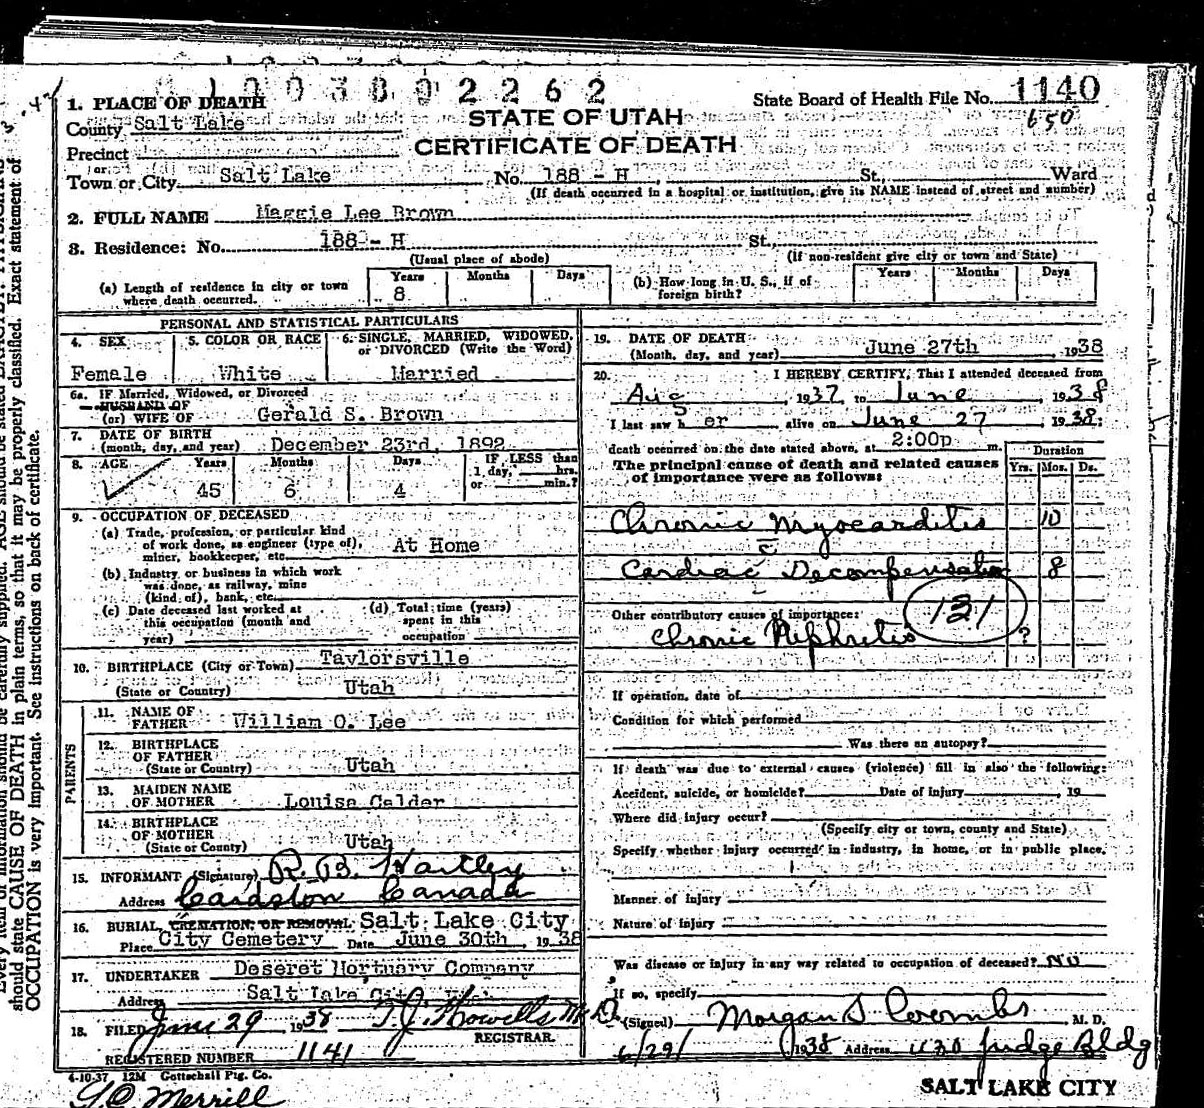 1. PLACE OF DEATH
County Salt Lake
Precinct
or
Town or City Salt Lake No. 188 - H St., Ward
(If death occurred in a hospital or institution, give its NAME instead of street and number)
2 2 6 2
STATE OF UTAH
CERTIFICATE OF DEATH
State Board of Health File No. 1140
650
2. FULL NAME Maggie Lee Brown
3. Residence: No. 188 - H St.
(Usual place of abode) (If non-resident give city or town and State)
(a) Length of residence in city or town where death occurred. Years 8 Months Days
(b) How long in U. S., if of foreign birth? Years Months Days
PERSONAL AND STATISTICAL PARTICULARS
4. SEX Female
5. COLOR OR RACE White
6. SINGLE, MARRIED, WIDOWED, or DIVORCED (Write the Word) Married
6a. If Married, Widowed, or Divorced
HUSBAND OF
(or) WIFE OF Gerald S. Brown
7. DATE OF BIRTH
(month, day, and year) December 23rd, 1892
8. AGE Years 45 Months 6 Days 4
IF LESS than
1 day, hrs.
or min.?
9. OCCUPATION OF DECEASED
(a) Trade, profession, or particular kind
of work done, as engineer (type of),
miner, bookkeeper, etc. At Home
(b) Industry or business in which work
was done, as railway, mine
(kind of), bank, etc.
(c) Date deceased last worked at
this occupation (month and
year)
(d) Total time (years)
spent in this
occupation
10. BIRTHPLACE (City or Town) Taylorsville
(State or Country) Utah
PARENTS
11. NAME OF
FATHER William O. Lee
12. BIRTHPLACE
OF FATHER
(State or Country) Utah
13. MAIDEN NAME
OF MOTHER Louise Calder
14. BIRTHPLACE
OF MOTHER
(State or Country) Utah
15. INFORMANT (Signature) R. B. Hartley
Address Cardston Canada
16. BURIAL, CREMATION, OR REMOVAL Salt Lake City
Place City Cemetery Date June 30th, 1938
17. UNDERTAKER Deseret Mortuary Company
Address Salt Lake City
18. FILED June 29 1938 T. J. Howells M.D.
REGISTRAR.
REGISTERED NUMBER 1141
4-10-37 12M Gottschall Ptg. Co.
19. DATE OF DEATH
(Month, day, and year) June 27th, 1938
20. I HEREBY CERTIFY, That I attended deceased from
Aug, 1937, to June, 1938
I last saw her alive on June 27, 1938;
death occurred on the date stated above, at 2:00p m.
The principal cause of death and related causes
of importance were as follows:
Duration
Yrs. Mos. Ds.
Chronic Myocarditis 10
c
Cardiac Decompensation 8
131
Other contributory causes of importance:
Chronic Nephritis ?
If operation, date of
Condition for which performed
Was there an autopsy?
If death was due to external causes (violence) fill in also the following:
Accident, suicide, or homicide? Date of injury, 19
Where did injury occur?
(Specify city or town, county and State)
Specify whether injury occurred in industry, in home, or in public place.
Manner of injury
Nature of injury
Was disease or injury in any way related to occupation of deceased? No
If so, specify
(Signed) Morgan S Coombs M. D.
6/29/1938 Address Judge Bldg
SALT LAKE CITY
should state CAUSE OF DEATH in plain terms, so that it may be properly classified. Exact statement of
OCCUPATION is very important. See instructions on back of certificate.
Merrill